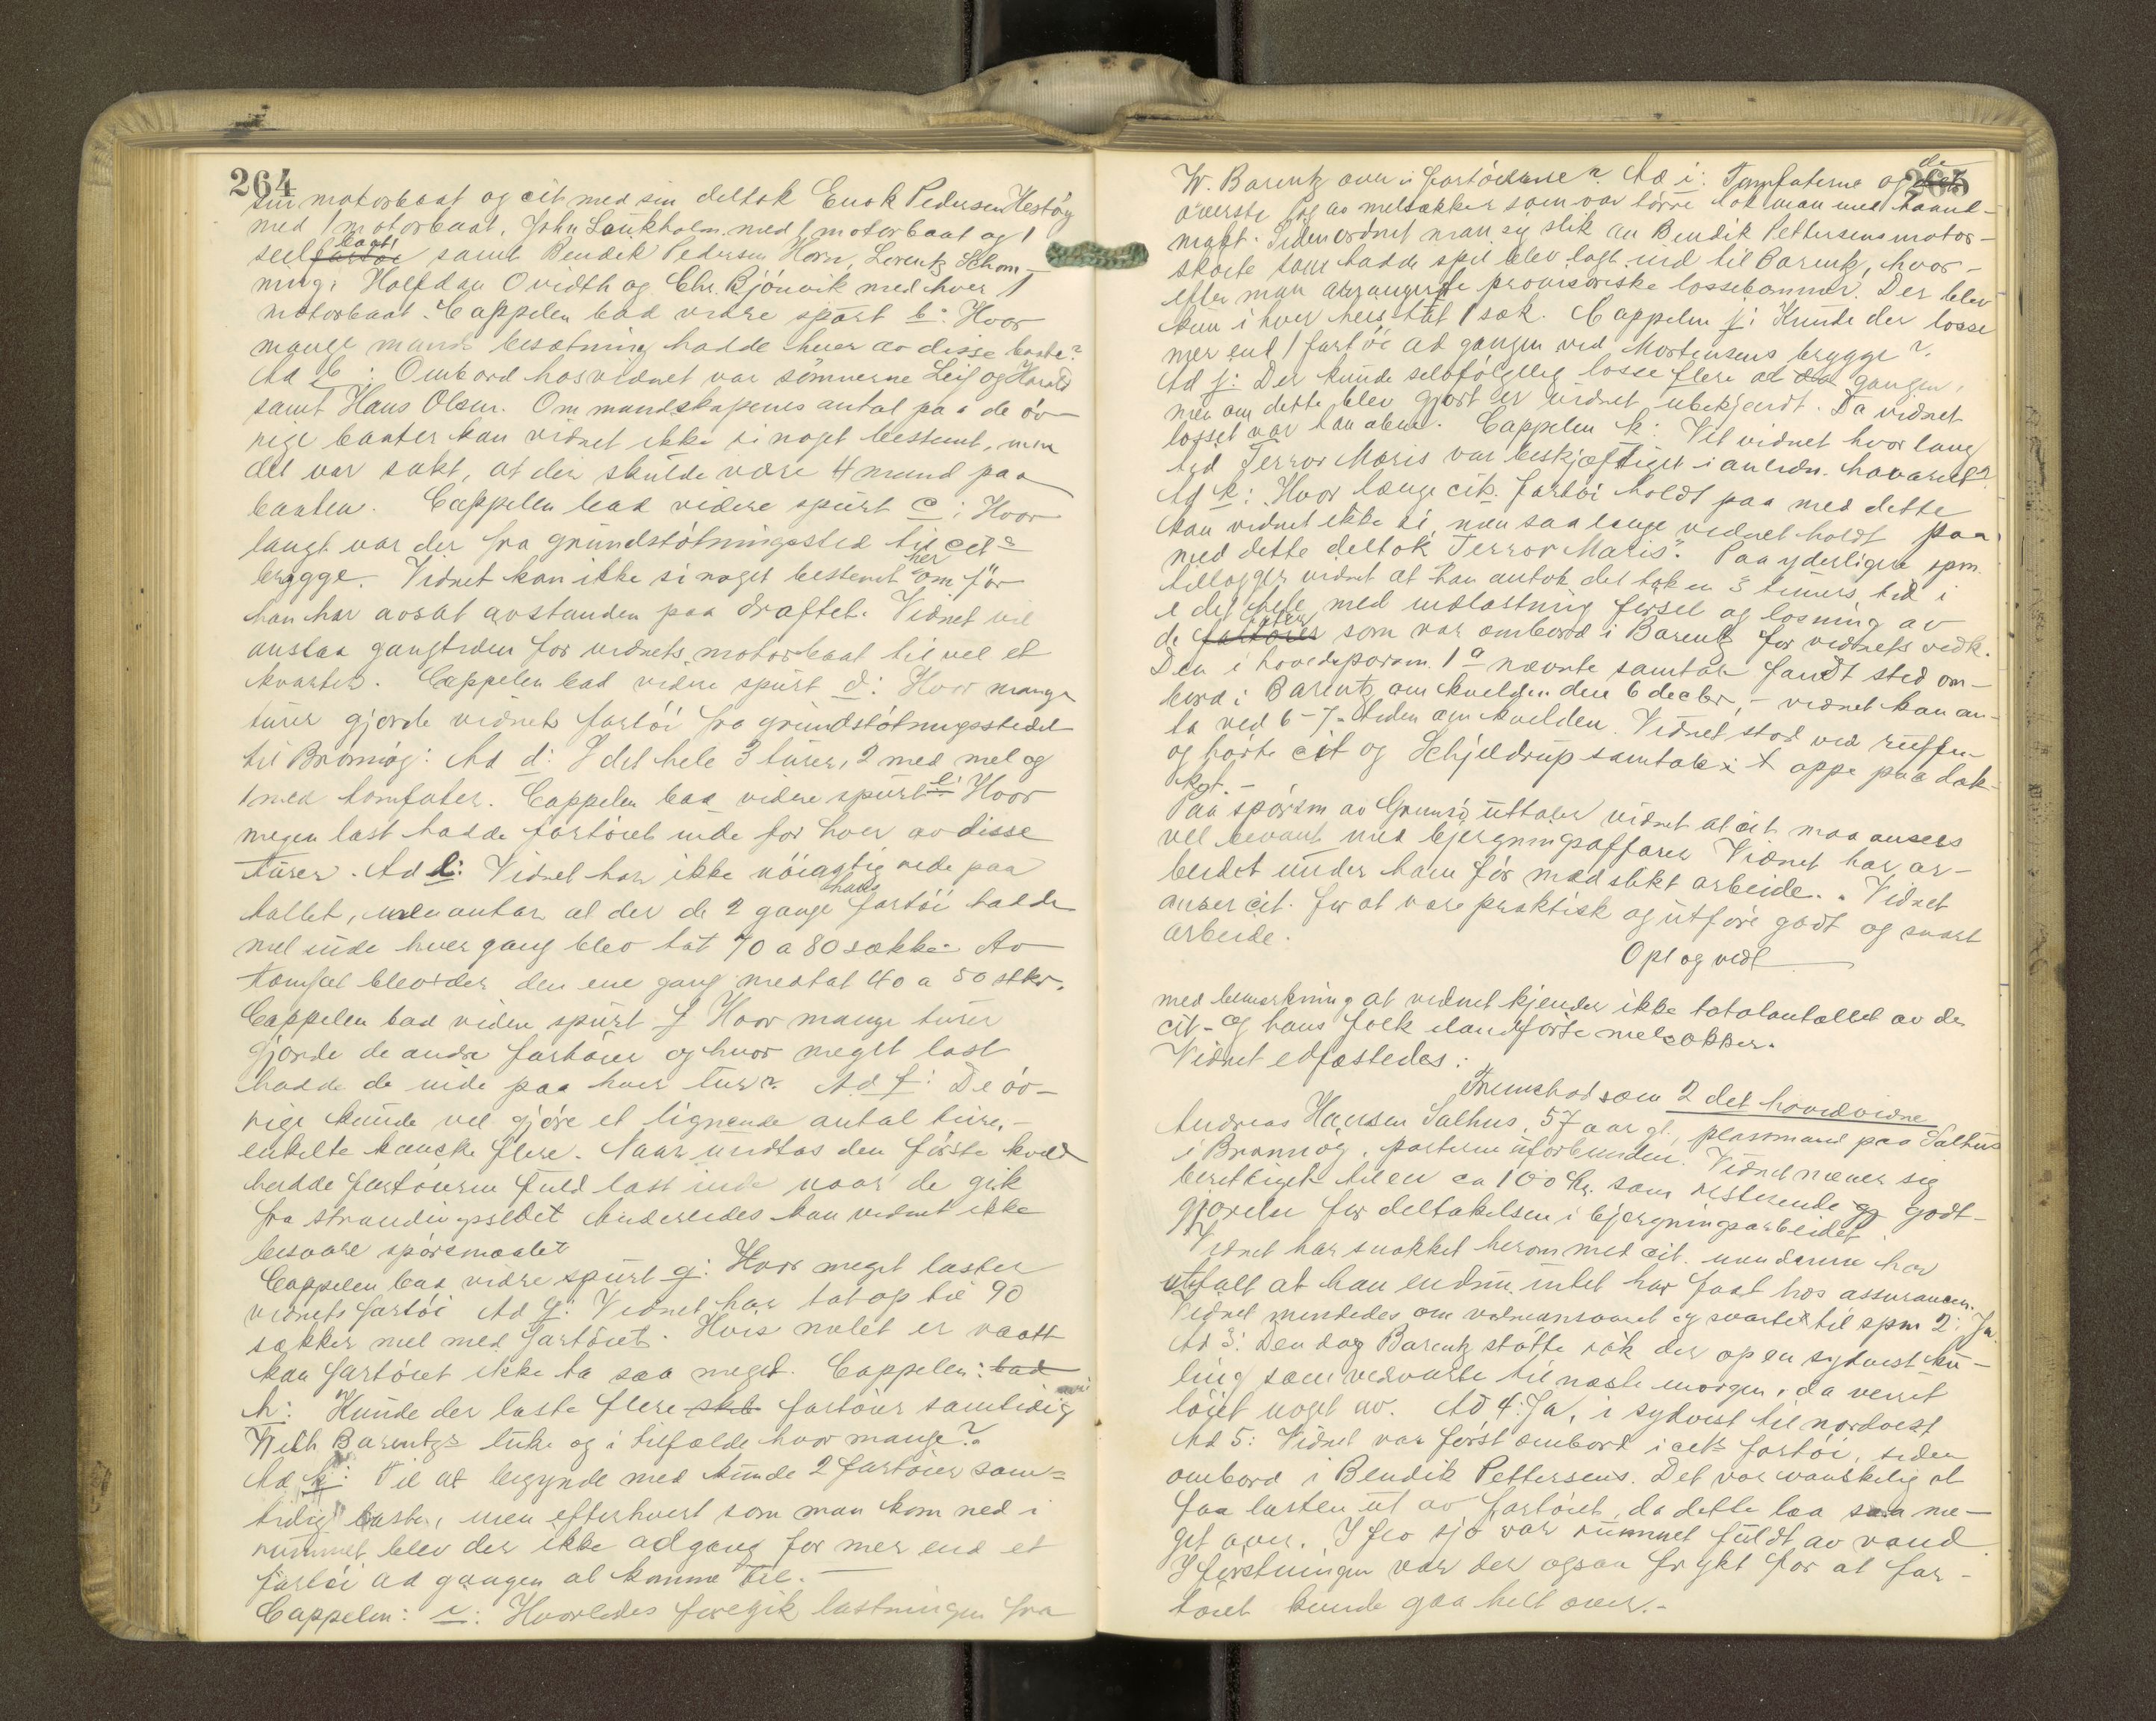 264
sin motorbaat og cit med sin deltok Enok Pedersen Hestøy
med 1 motorbaat, John Laukholm med 1 motorbaat og 1
seilfartøi baat, samt Bendik Pedersen Horn, Lorentz Schøn-
ning, Halfdan Ovidth og Chr. Bjönvik med hver 1
motorbaat. Cappelen bad vidre spurt b: Hvor
mange mands besætning hadde hver av disse baate?
Ad b: Ombord hos vidnet var sönnerne Leif og Harald
samt Hans Olsen. Om mandskapenes antal paa de öv-
rige baater kan vidnet ikke si noget bestemt, men
det var sakt, at der skulde være 4 mand paa
baaten. Cappelen bad videre spurt c: Hvor
langt var der fra grundstötningssted til cits
brygge. Vidnet kan ikke si noget bestemt her om för
han har avsat avstanden paa draftet. Vidnet vil
anslaa gangtiden for vidnets motorbaat til vel et
kvarter. Cappelen bad videre spurt d: Hvor mange
turer gjorde vidnets fartöi fra grundstötningsstedet
til Brönnöy: Ad d: I det hele 3 turer, 2 med mel og
1 med tomfater. Cappelen bad videre spurt e: Hvor
megen last hadde fartöiet inde for hver av disse
turer. Ad e: Vidnet har ikke nöiagtig rede paa
tallet, men antar at der de 2 gange hans fartöi hadde
mel inde hver gang blev tat 70 a 80 sækker. Av
tomfat blev der den ene gang medtat 40 a 50 stkr.
Cappelen bad videre spurt f Hvor mange turer
gjorde de andre fartöier og hvor meget last
hadde de inde paa hver tur? Ad f: De öv-
rige kunde vel gjöre et lignende antal turer,-
enkelte kanske flere. Naar undtas den förste kveld
hadde fartöierne fuld last inde naar de gik
fra strandingsstedet Anderledes kan vidnet ikke
besvare spörsmaalet
Cappelen bad vidre spurt g: Hvor meget laster
vidnets fartöi Ad g: Vidnet har tat op til 90
sækker mel med fartöiet. Hvis melet er vaatt
kan fartöiet ikke ta saa meget. Cappelen: bad
h: Kunde der laste flere fartöier samtidig
Wilh. Barentzs luke og i tilfælde hvor mange?
Ad h: Til at begynde med kunde 2 fartöier sam=
tidig laste, men efterhvert som man kom ned i
rummet blev der ikke adgang for mer end et
fartöi ad gangen at komme til.
Cappelen: i: Hvorledes foregik lastningen fra
265
W. Barentz over i fartöierne? Ad i: Tomfaterne og de
överste lag av melsækker som var törre tok man med haand-
magt. Siden ordnet man sig slik at Bendik Pettersens motor-
sköite som hadde spil blev lagt ind til Barentz, hvor-
efter man arrangerte provisoriske lossebommer. Der blev
kun i hver heis tat 1 sæk. Cappelen j: Kunde der losse
mer end 1 fartöi ad gangen ved Mortensens brygge?
Ad j: Der kunde selvfölgelig losse flere ad gangen,
men om dette blev gjort er vidnet ubekjendt. Da vidnet
losset var han alene. Cappelen k: Vet vidnet hvor lang
tid Terror Maris var beskjæftiget i anledn. havariet?
Ad k: Hvor længe cits. fartöi holdt paa med dette
kan vidnet ikke si, men saa længe vidnet holdt paa
med dette deltok "Terror Maris". Paa yderligere spm.
tillægger vidnet at han antok det tok en 3 timers tid i
i det hele med indlastning försel og losning av
de fater som var ombord i Barentz for vidnets vedk.
Den i hovedspörsm. 1a nævnte samtale fandt sted om-
bord i Barentz om kvelden den 6 decbr, - vidnet kan an-
ta ved 6-7-tiden om kvelden. Vidnet stod ved ruffen
og hörte cit og Schjeldrup samtale oppe paa dæk-
ket.-
Paa spörsm av Grumsö uttaler vidnet at cit maa ansees
vel bevant med bjergningsaffærer Vidnet har ar-
beidet under ham för med slikt arbeide. Vidnet
anser cit. for at være praktisk og utföre godt og snart
arbeide.
Opl og vedt
med bemerkning at vidnet kjender ikke totalantallet av de
cit- og hans folk ilandförte melsækker.
Vidnet edfæstedes:
Fremstod som 2 det hovedvidne
Andreas Hansen Salhus, 57 aar gl, plassmand paa Salhus
i Brönnöy, parterne uforbunden. Vidnet mener sig
berettiget til en ca 100 Kr. som resterende godt-
gjörelse for deltakelsen i bjergningsarbeidet
Vidnet har snakket herom med cit. men denne har
uttalt at han endnu intet har faat hos assurancen.
Vidnet mindedes om vidneansvaret og svarte til spm 2: Ja.
Ad 3: Den dag Barentz stötte rök der op en sydvest ku-
ling som vedvarte til næste morgen, da veiret
löiet noget av. Ad 4: Ja, i sydvest til nordvest
Ad 5: Vidnet var först ombord i cits fartöi, siden
ombord i Bendik Pettersens. Det var vanskelig at
faa lasten ut av fartöiet, da dette laa saa me-
get over. I flo sjö var rummet fuldt av vand
I förstningen var der ogsaa frykt for at far-
töiet kunde gaa helt over.-